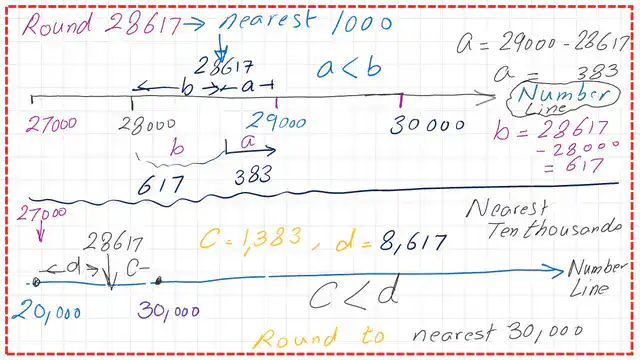 Round 28617 → nearest 1000
28617
b a
a < b
a = 29000 - 28617
a = 383
Number
Line
27000 28000 29000 30000
b a
617 383
b = 28617
- 28000
= 617
27000
Nearest
Ten thousands
28617
C = 1,383, d = 8,617
d C
Number
Line
20,000 30,000
C < d
Round to nearest 30,000